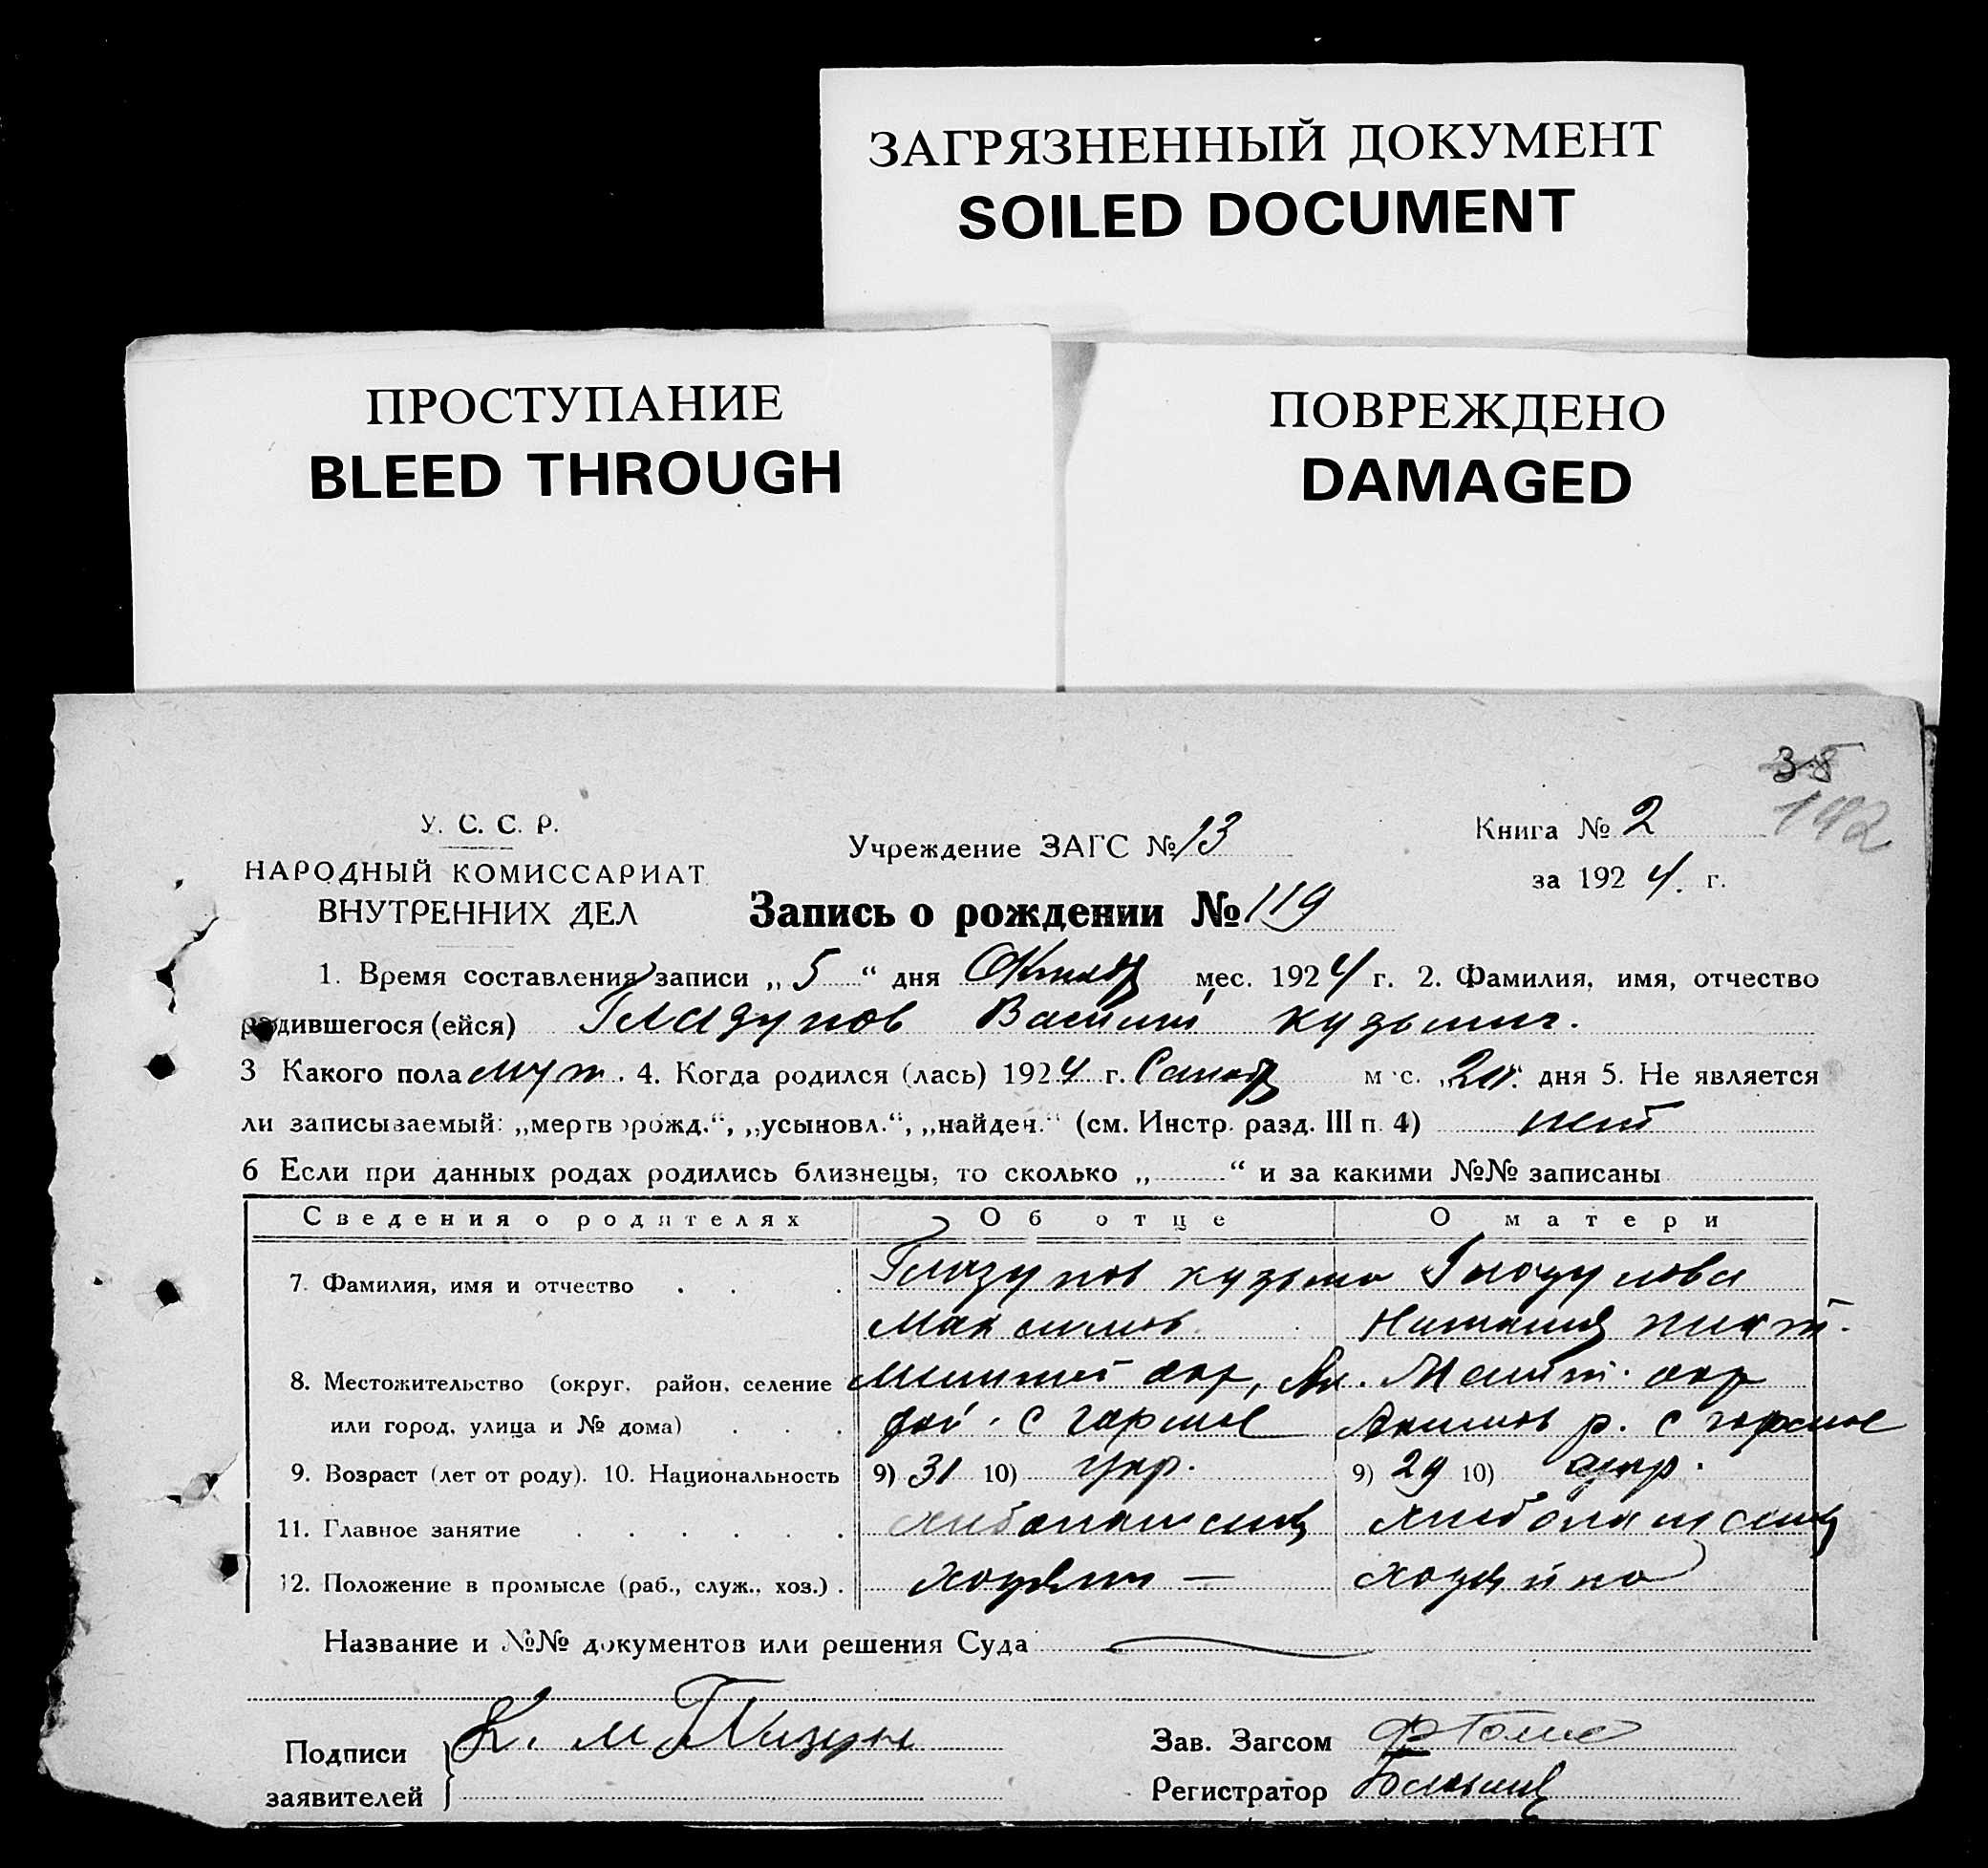 ЗАГРЯЗНЕННЫЙ ДОКУМЕНТ
SOILED DOCUMENT
ПРОСТУПАНИЕ
BLEED THROUGH
ПОВРЕЖДЕНО
DAMAGED
38
192
У. С. С. Р.
НАРОДНЫЙ КОМИССАРИАТ
ВНУТРЕННИХ ДЕЛ
Учреждение ЗАГС № 13
Книга № 2
за 1924 г.
Запись о рождении № 119
1. Время составления записи „5“ дня мес. 1924 г. 2. Фамилия, имя, отчество
родившегося (ейся) Глазунов Василий Кузьмич.
3 Какого пола муж. 4. Когда родился (лась) 1924 г. мес. дня 5. Не является
ли записываемый: „мертворожд.“, „усыновл.“, „найден.“ (см. Инстр. разд. III п. 4) нет
6 Если при данных родах родились близнецы, то сколько „ “ и за какими №№ записаны
Сведения о родителях Об отце О матери
7. Фамилия, имя и отчество . . . Глазунов Кузьма Глазунова
Максимов Наталия
8. Местожительство (округ, район, селение окр, окр
или город, улица и № дома) . . . с р. с
9. Возраст (лет от роду). 10. Национальность 9) 31 10) укр. 9) 29 10) укр.
11. Главное занятие . . . . . .
12. Положение в промысле (раб., служ., хоз.) . хозяин — хозяйка
Название и №№ документов или решения Суда
Подписи
заявителей
К. М Глазун
Зав. Загсом
Регистратор